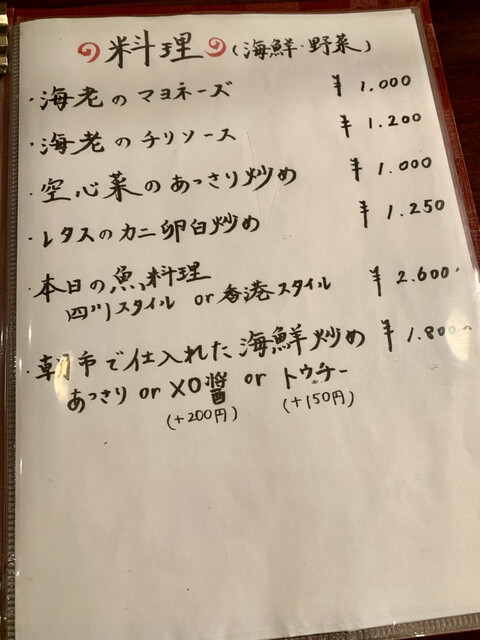 料理 (海鮮・野菜)
・海老のマヨネーズ ¥1.000
・海老のチリソース ¥1.200
・空心菜のあっさり炒め ¥1.000
・レタスのカニ卵白炒め ¥1.250
・本日の魚料理 ¥2.600~
四川スタイル or 香港スタイル
・朝市で仕入れた海鮮炒め ¥1.800~
あっさり or XO醤 or トウチー
(+200円) (+150円)